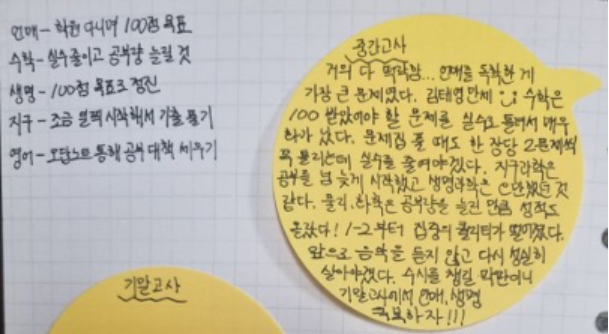 언매 - 학원 다니며 100점 목표
수학 - 실수 줄이고 공부량 늘릴 것
생명 - 100점 목표로 정진
지구 - 조금 일찍 시작해서 기출 풀기
영어 - 오답노트 통해 공부 대책 세우기
중간고사
거의 다 떡락함... 언매를 독학한 게
가장 큰 문제였다. 김태영만세 수학은
100 받았어야 할 문제를 실수로 틀려서 매우
화가 났다. 문제집 풀 때도 한 장당 2문제씩
꼭 틀리는데 실수를 줄여야겠다. 지구과학은
공부를 넘 늦게 시작했고 생명과학은 안봤던 것
같다. 물리, 화학은 공부량을 늘린 만큼 성적도
올랐다! 1-2부터 집중의 퀄리티가 떨어졌다.
앞으로 음악을 듣지 않고 다시 성실히
살아야겠다. 수시를 챙길 막판이니
기말고사에서 언매, 생명
극복하자!!!
기말고사